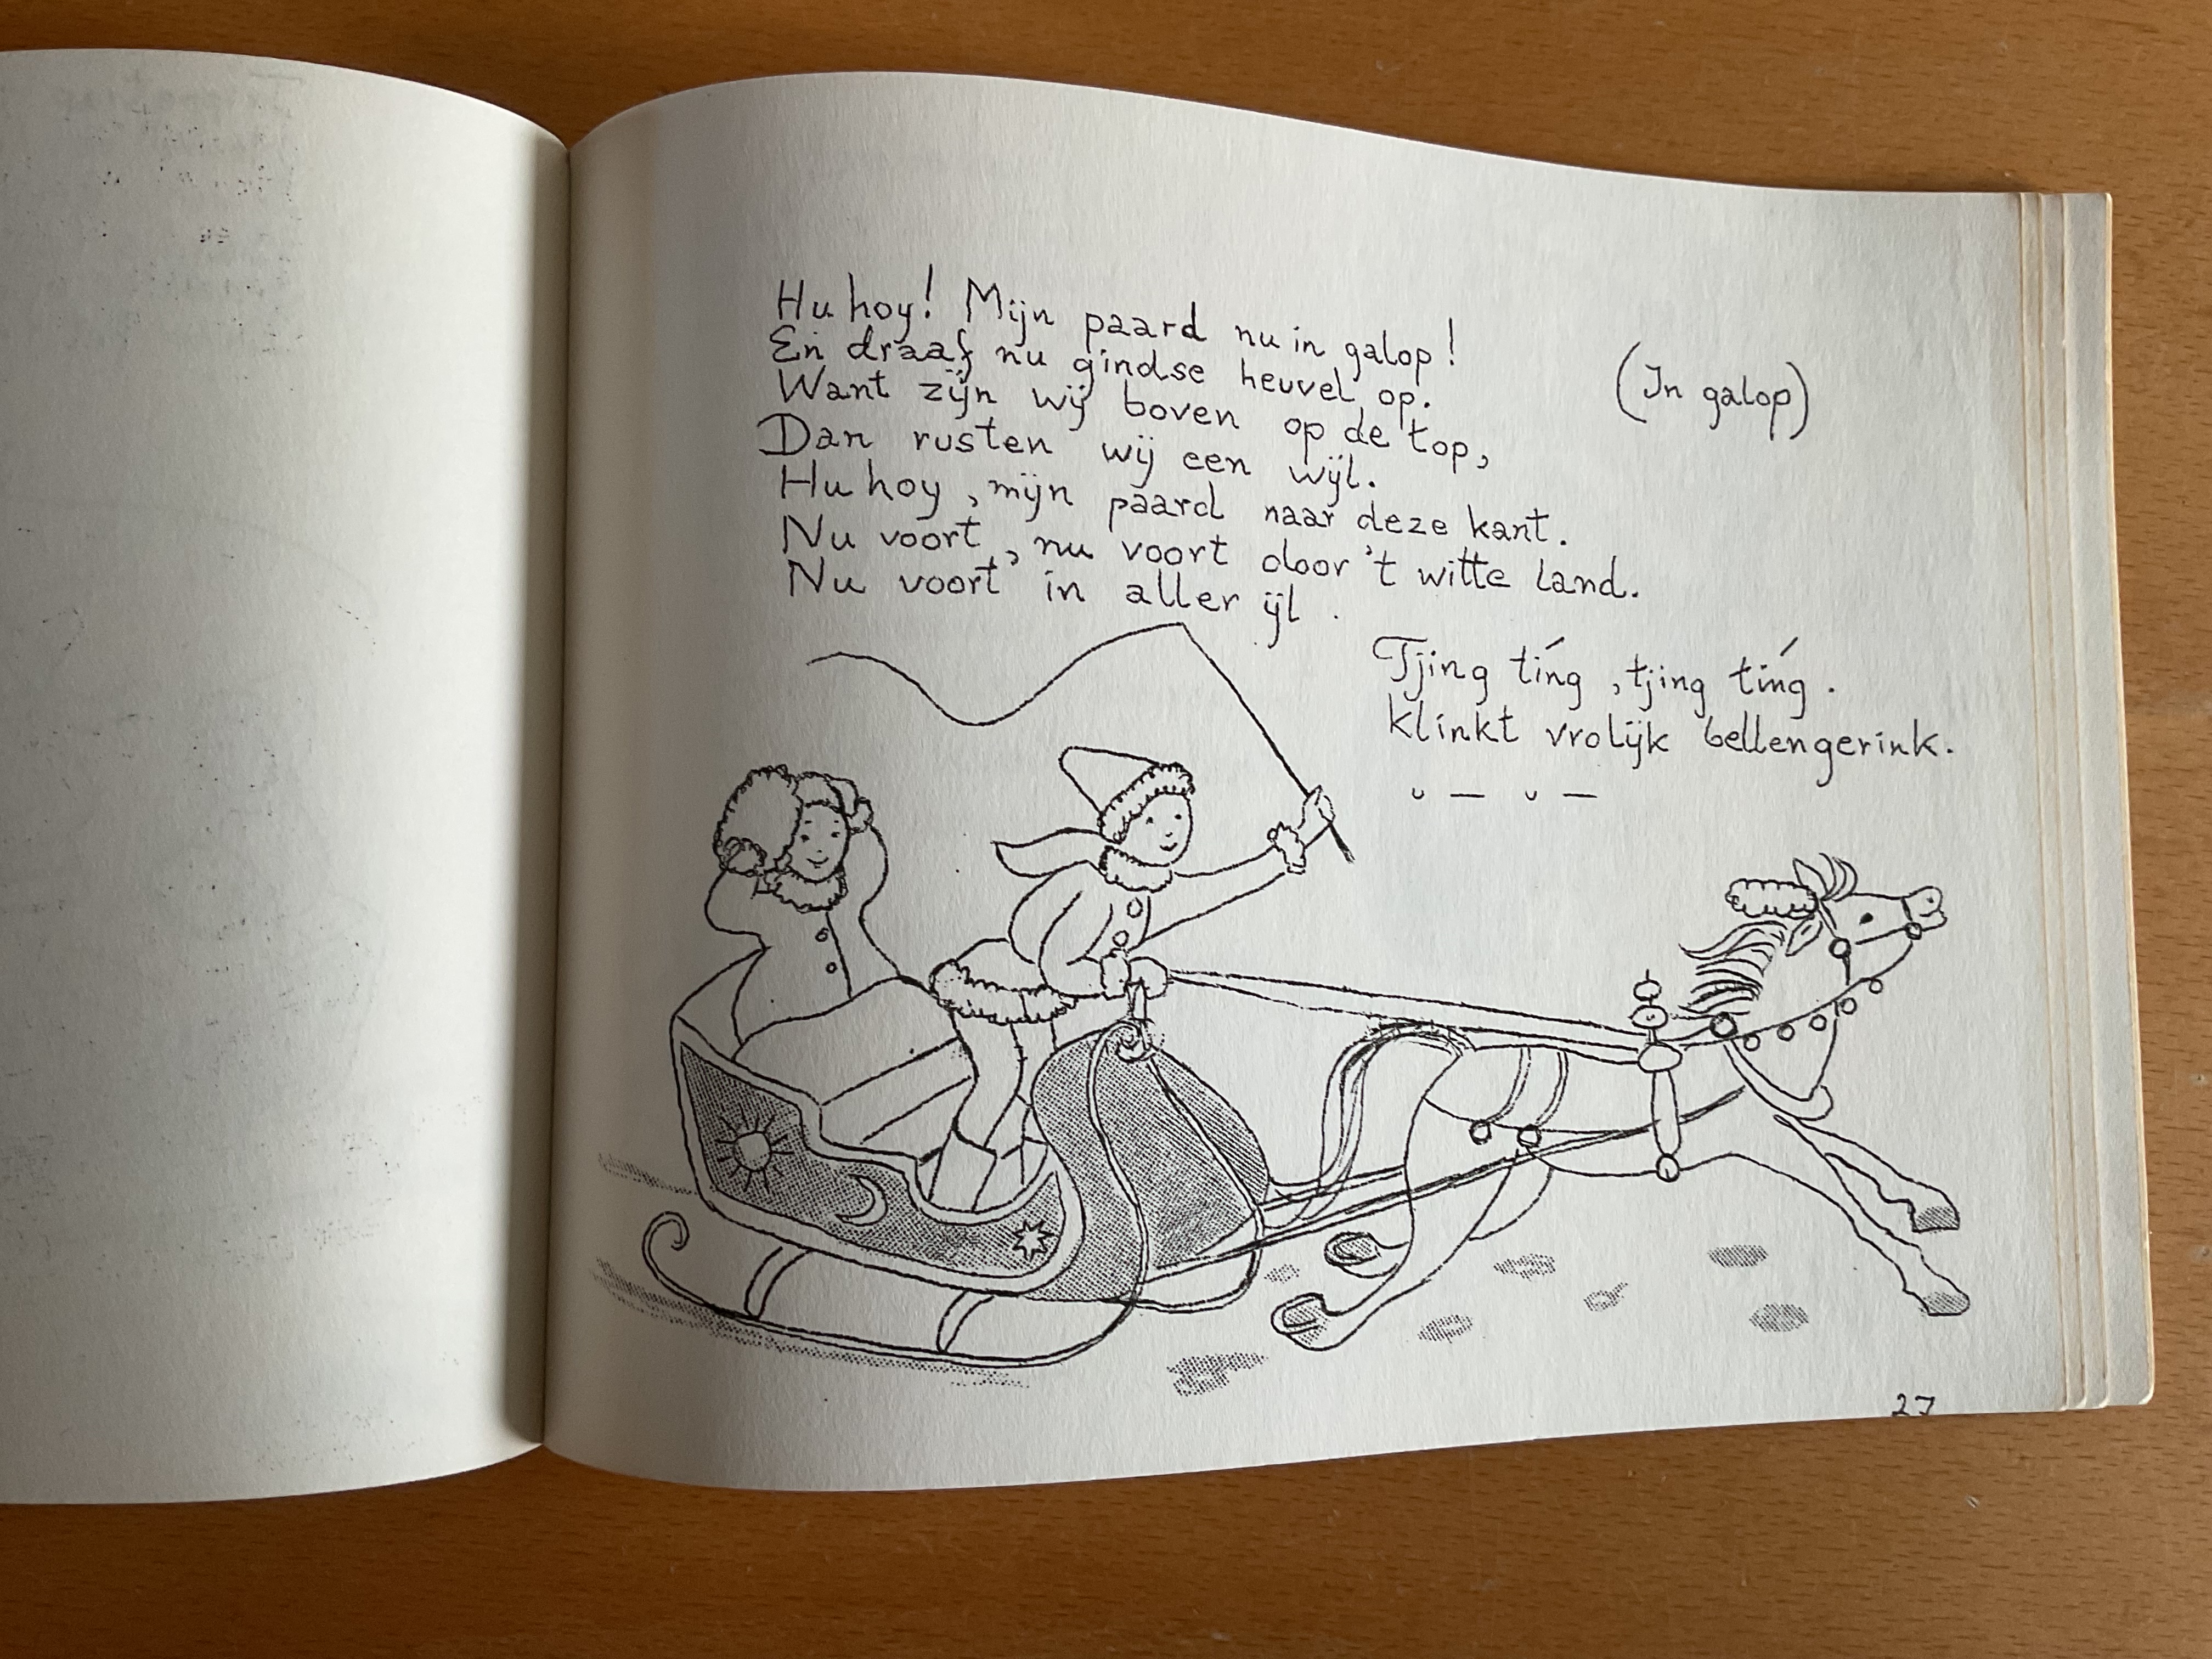 Hu hoy! Mijn paard nu in galop!
En draaf nu gindse heuvel op.
(In galop)
Want zijn wij boven op de top,
Dan rusten wij een wijl.
Hu hoy, mijn paard naar deze kant.
Nu voort, nu voort door 't witte land.
Nu voort in aller ijl.
Tjing tíng, tjing tíng.
klinkt vrolijk bellengerink.
ᴗ — ᴗ —
27